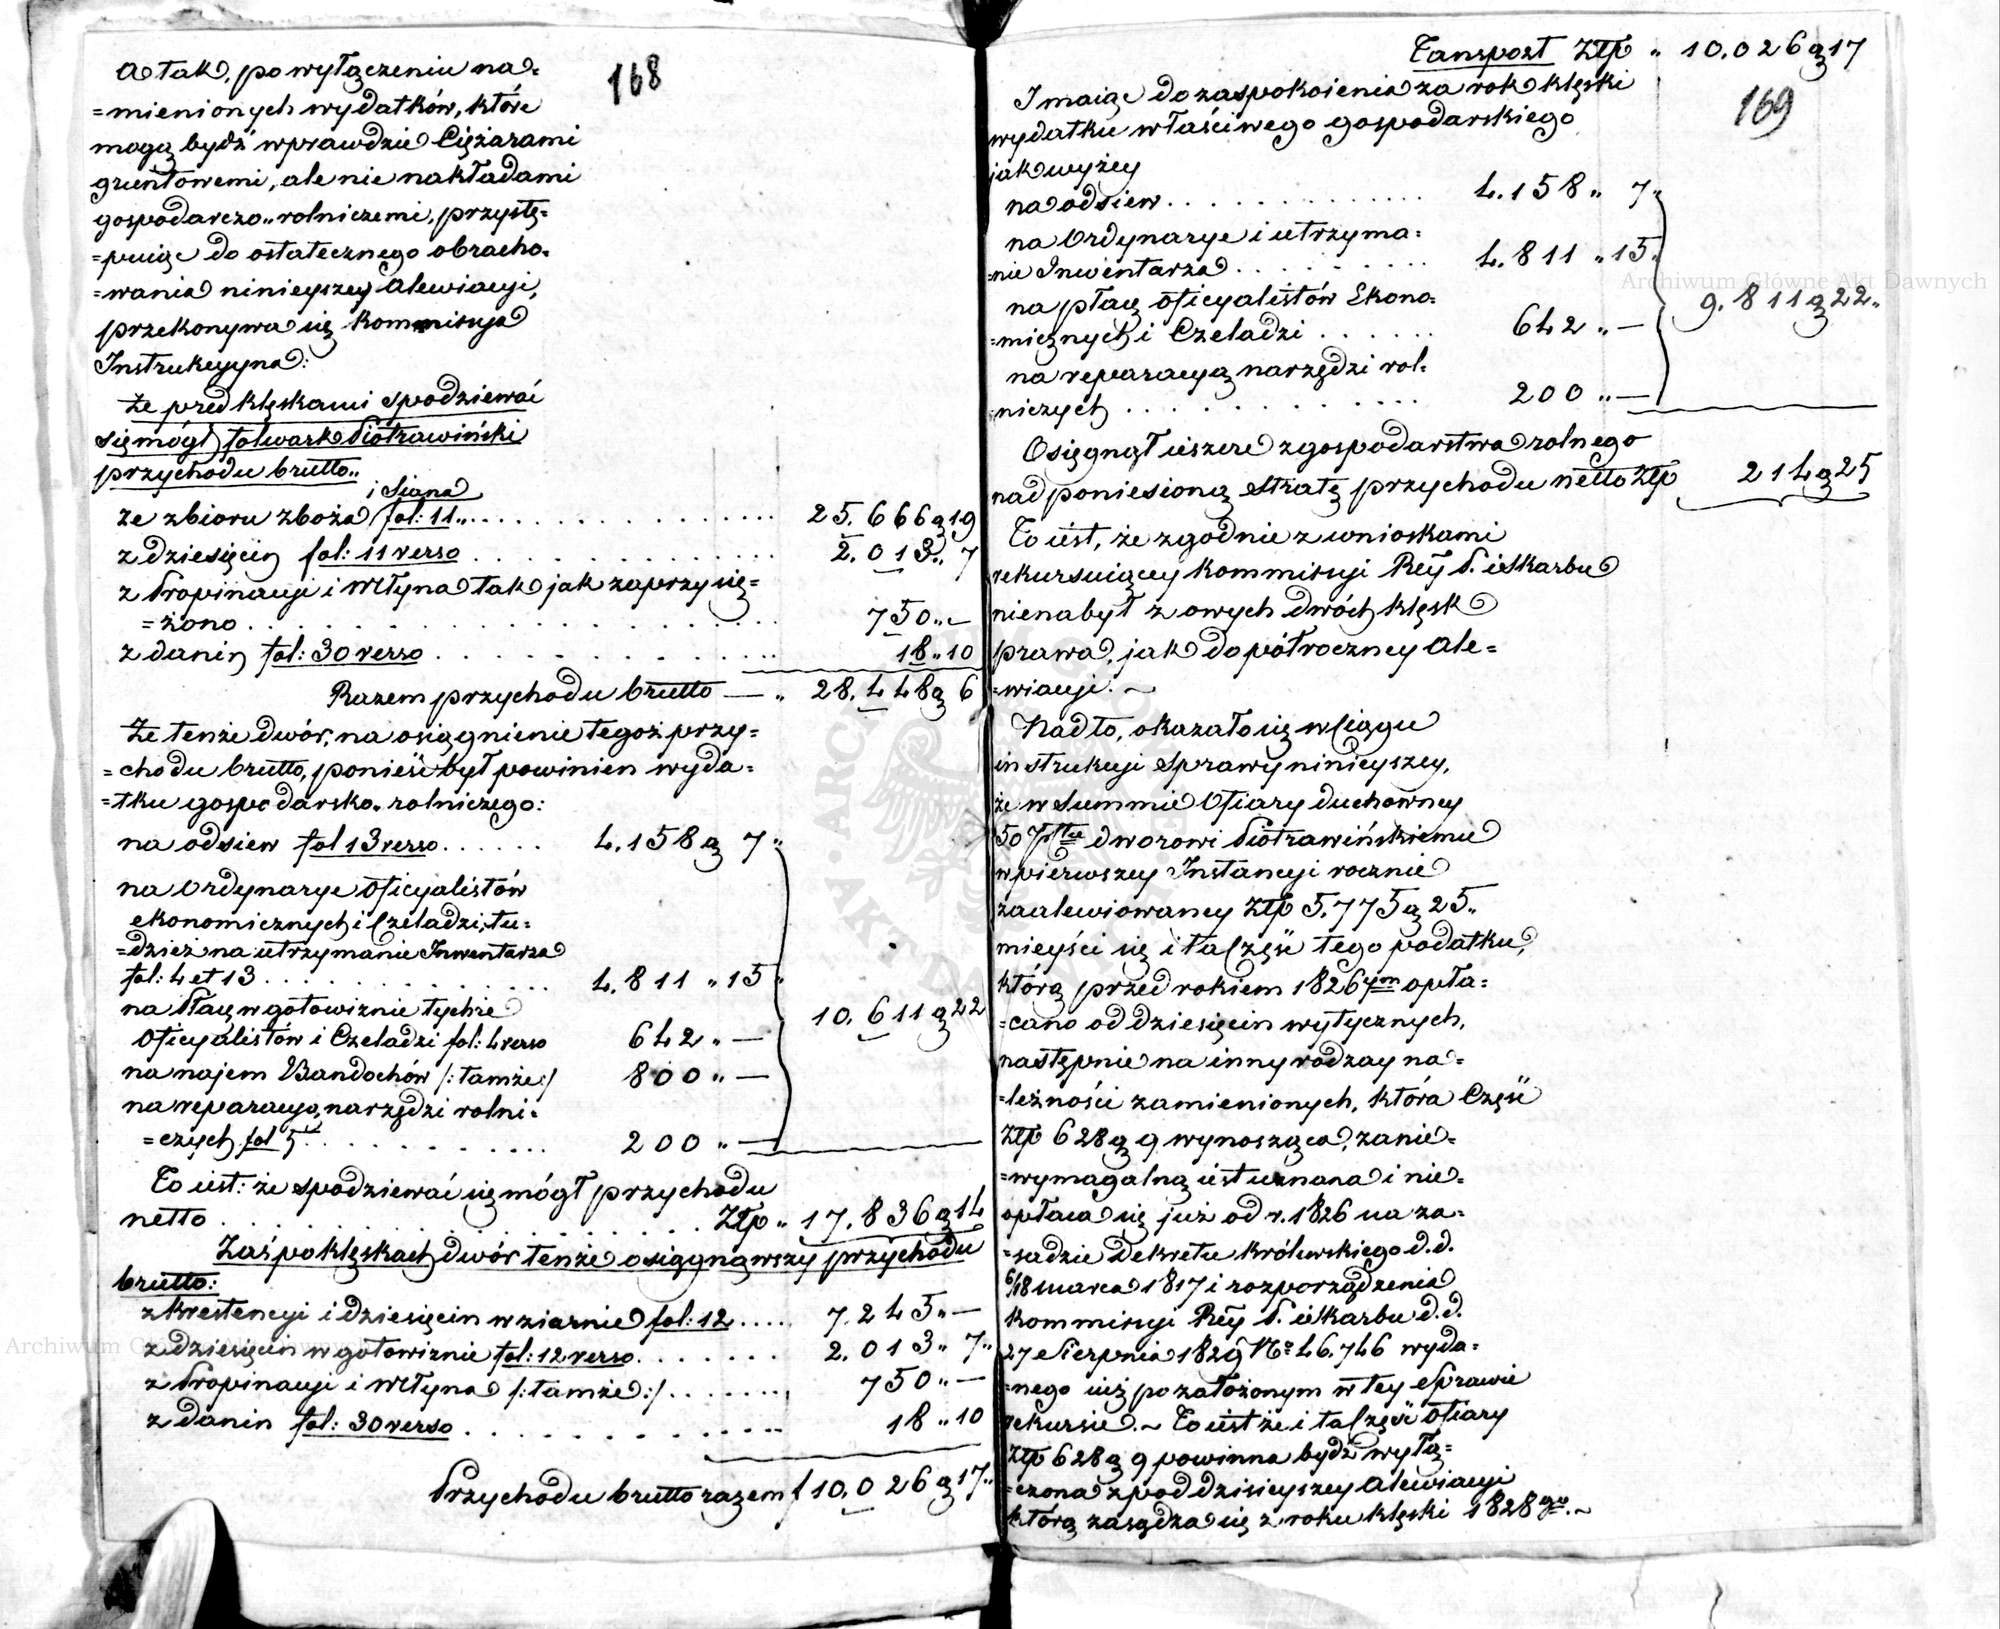 168
A tak, po wyłączeniu na=
=mienionych wydatków, które
mogą bydź wprawdzie Ciężarami
gruntowemi, ale nie nakładami
gospodarczo„rolniczemi, przystę=
=puiąc do ostatecznego obracho=
=wania ninieyszey Alewiacyi,
przekonywa się Kommissya
Instrukcyyna:
Że przed klęskami spodziewać
się mógł folwark Piotrawiński
przychodu brutto„
i Siana
ze zbioru zboża fol: 11„ 25.666 g 19
z dziesięcin fol: 11 verso 2.013„ 7
z Propinacyi i Młyna tak jak zaprzysię=
=żono 750„ —
z danin fol: 30 verso 18„10
Razem przychodu brutto — „ 28.448 g 6
Że tenże dwór, na osiągnienie tegoż przy=
=chodu brutto, ponieść był powinien wyda=
=tku gospodarsko„rolniczego:
na odsiew fol 13 verso 4.158 g 7„
na Ordynarye Oficyalistów
ekonomicznych i Czeladzi, tu=
=dzież na utrzymanie Inwentarza
fol: 4 et 13 4.811 „ 15„
na Płacę w gotowiznie tychże
Oficyalistów i Czeladzi fol: 4 verso 642 „ —
10.611 g 22
na najem Bandochów /: tamże :/ 800 „ —
na reparacyą narzędzi rolni=
=czych fol 5 200 „ —
To iest: że spodziewać się mógł przychodu
netto Złp „ 17.836 g 14
Zaś po klęskach dwór tenże osiągnąwszy przychodu
brutto:
z krestencyi i dziesięcin w ziarnie fol: 12 7.245„ —
z dziesięcin w gotowiznie fol: 12 verso 2.013„ 7„
z Propinacyi i Młyna /: tamże :/ 750„ —
z danin fol: 30 verso 18 „ 10
Przychodu brutto razem f 10.026 g 17„
Tansport Złp „ 10.026 g 17
169
I maiąc do zaspokoienia za rok klęski
wydatku właściwego gospodarskiego
jak wyżey
na odsiew 4.158 „ 7„
na Ordynarye i utrzyma=
=nie Inwentarza 4.811 „ 15„
9.811 g 22„
na płacę Oficyalistów Ekono=
=micznych i Czeladzi 642 „ —
na reparacyą narzędzi rol=
=niczych 200 „ —
Osięgnął ieszcze z gospodarstwa rolnego
nad poniesioną stratę przychodu netto Złp 214 g 25
To iest, że zgodnie z wnioskami
rekursuiącey Kommissyi Rzy P. i Skarbu
nienabył z owych dwóch klęsk
prawa, jak do półroczney Ale=
=wiacyi. ~
Nadto, okazało się w Ciągu
instrukcyi Sprawy ninieyszey,
że w Summie Ofiary duchowney
50 Pttu dworowi Piotrawińskiemu
w pierwszey Instancyi rocznie
zaalewiowaney Złp 5.775 g 25„
mieyści się i ta Część tego podatku,
którą przed rokiem 1826ym opła=
=cano od dziesięcin wytycznych,
następnie na inny rodzay na=
=leżności zamienionych, która Część
Złp 628 g 9 wynosząca, za nie=
=wymagalną iest uznana i nie
opłaca się już od r. 1826 na za=
=sadzie Dekretu Królewskiego d.d.
6/18 marca 1817 i rozporządzenia
Kommissyi Rzy P. i Skarbu d.d.
27 Sierpnia 1829 No 46.746 wyda=
=nego iuż po założonym w tey Sprawie
rekursie. ~ To iest że i ta Część Ofiary
Złp 628 g 9 powinna bydź wyłą=
=czona z pod dzisieyszey Alewiacyi
którą zasądza się z roku klęski 1828go. ~
Archiwum Główne Akt Dawnych